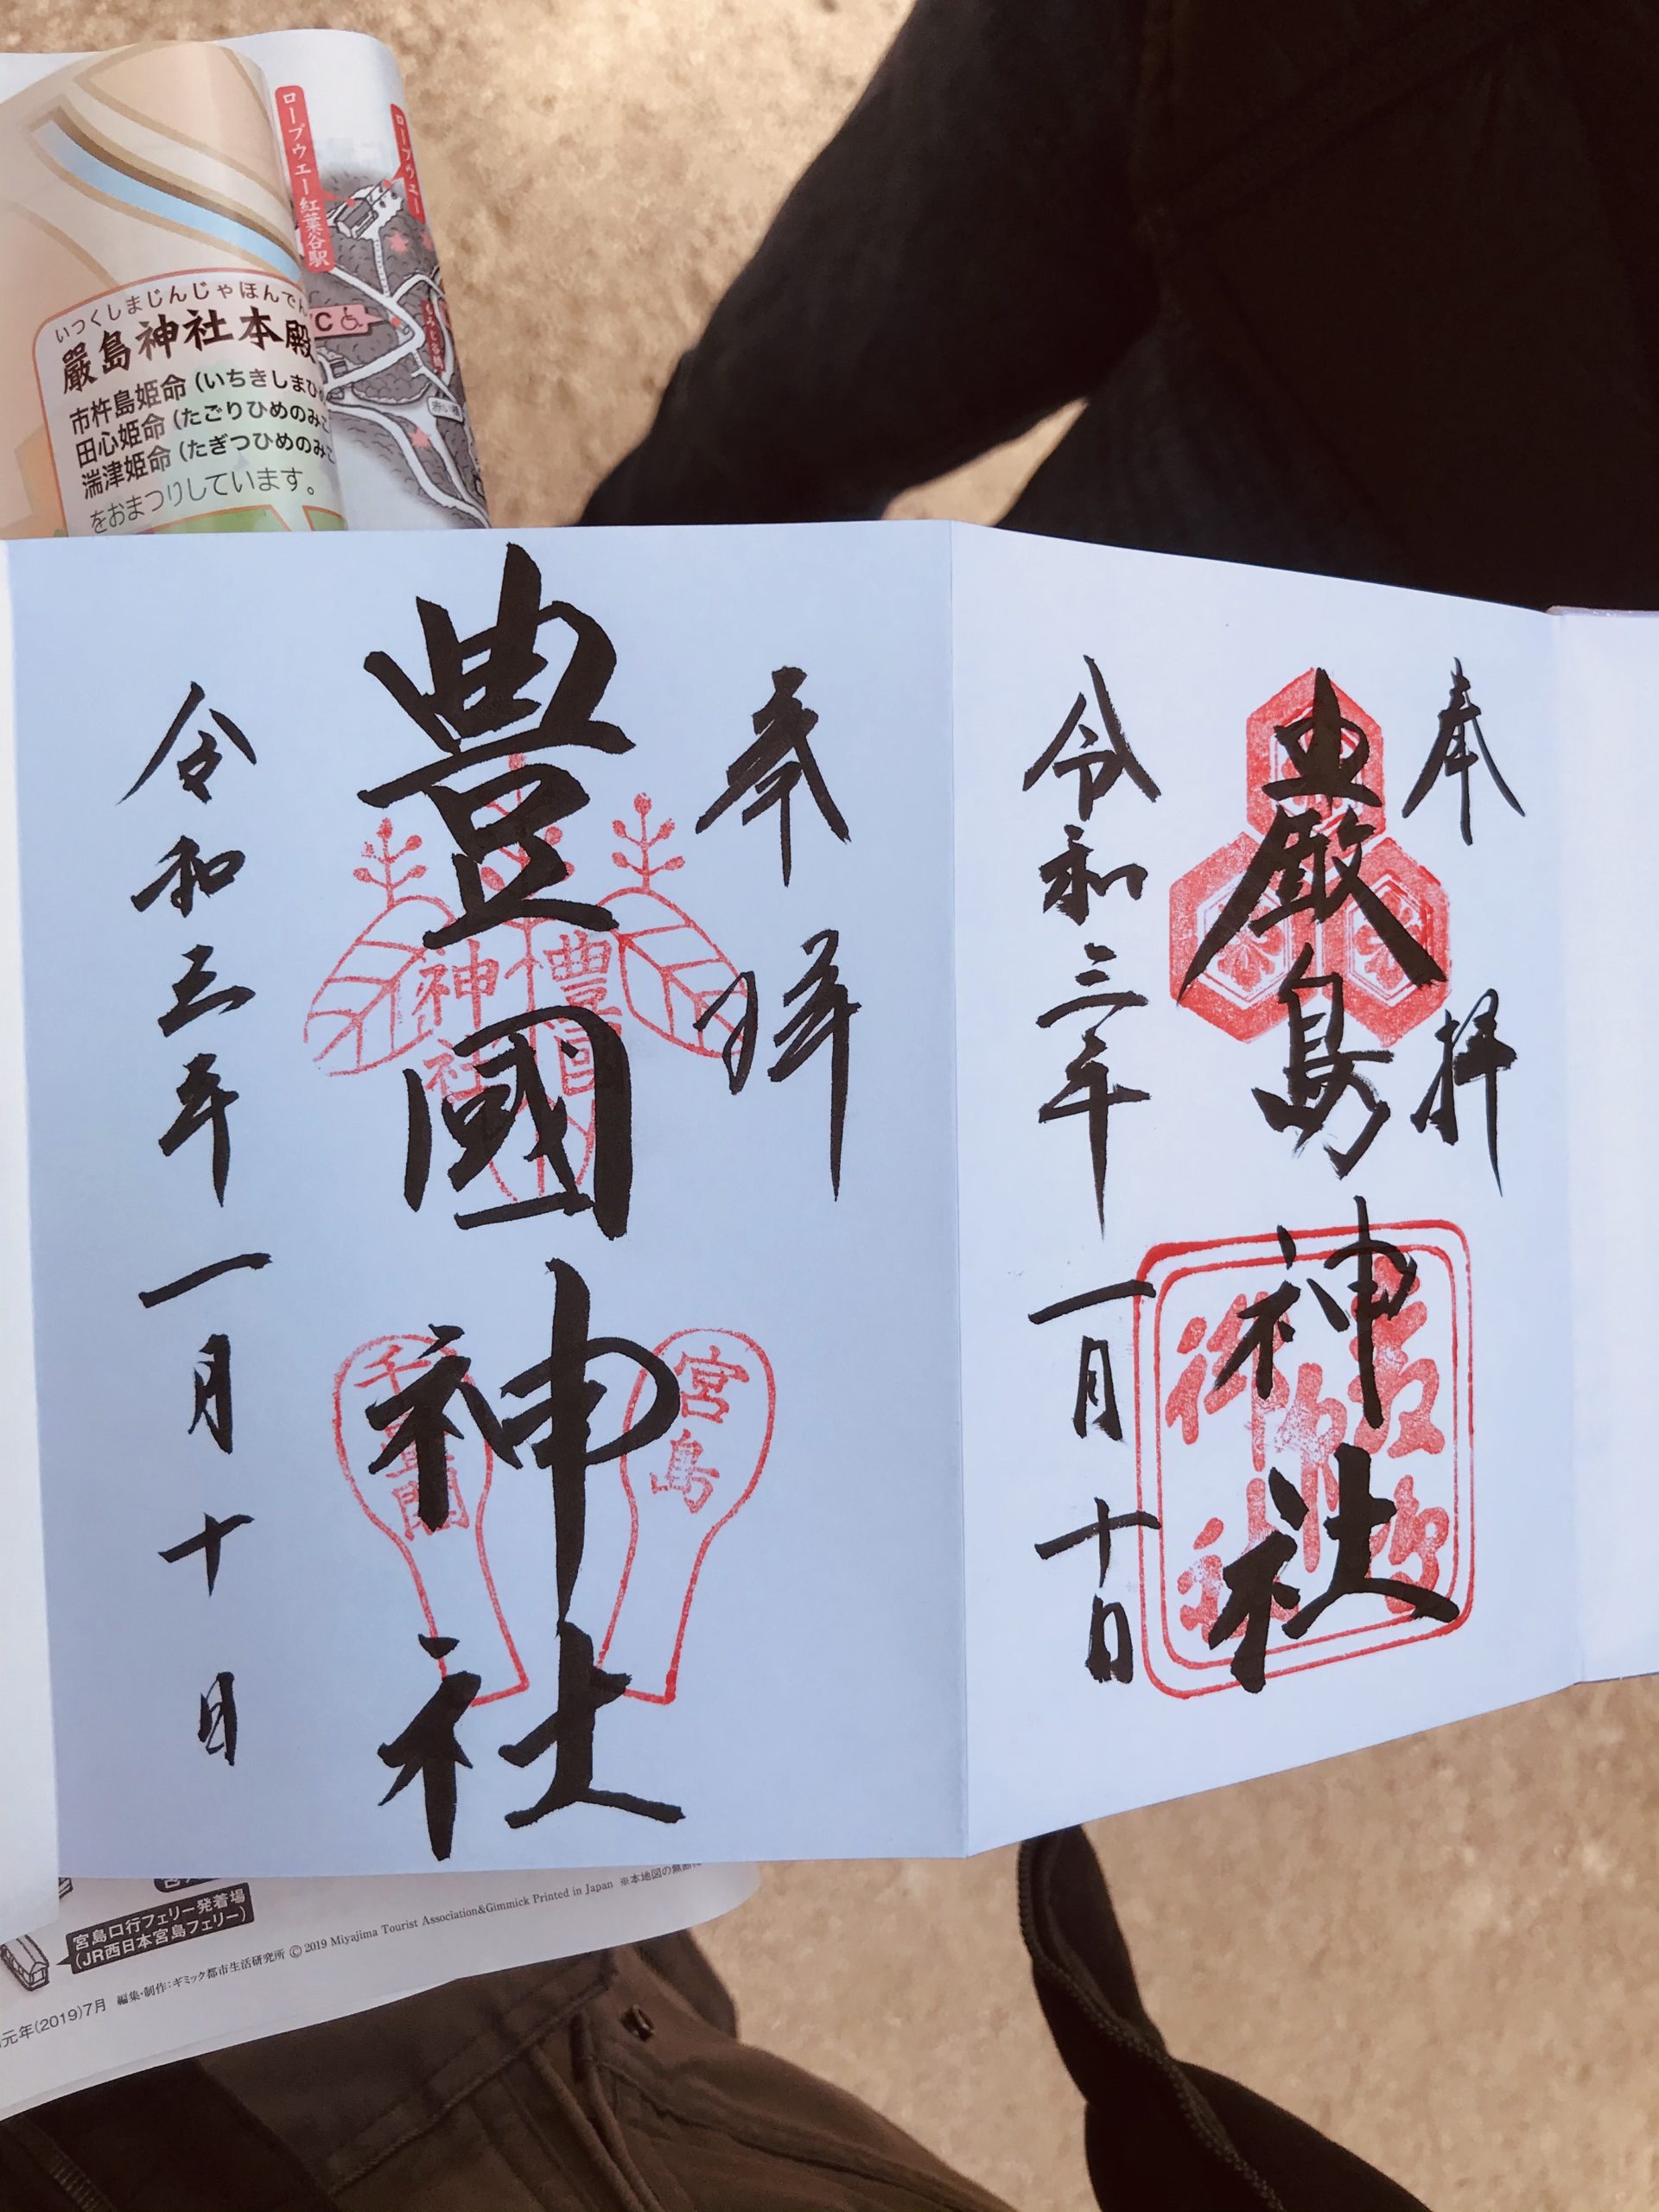 ロープウエー紅葉谷駅
ロープウエー
いつくしまじんじゃほんでん
嚴島神社本殿
市杵島姫命(いちきしまひめ
田心姫命(たごりひめのみこ
湍津姫命(たぎつひめのみこ
をおまつりしています。
奉拝
嚴島神社
令和三年一月十日
奉拝
豊國神社
令和三年一月十日
豊国
神社
宮島
千畳閣
宮島口行フェリー発着場
(JR西日本宮島フェリー)
元年(2019)7月 編集・制作:ギミック都市生活研究所 © 2019 Miyajima Tourist Association&Gimmick Printed in Japan ※本地図の無断